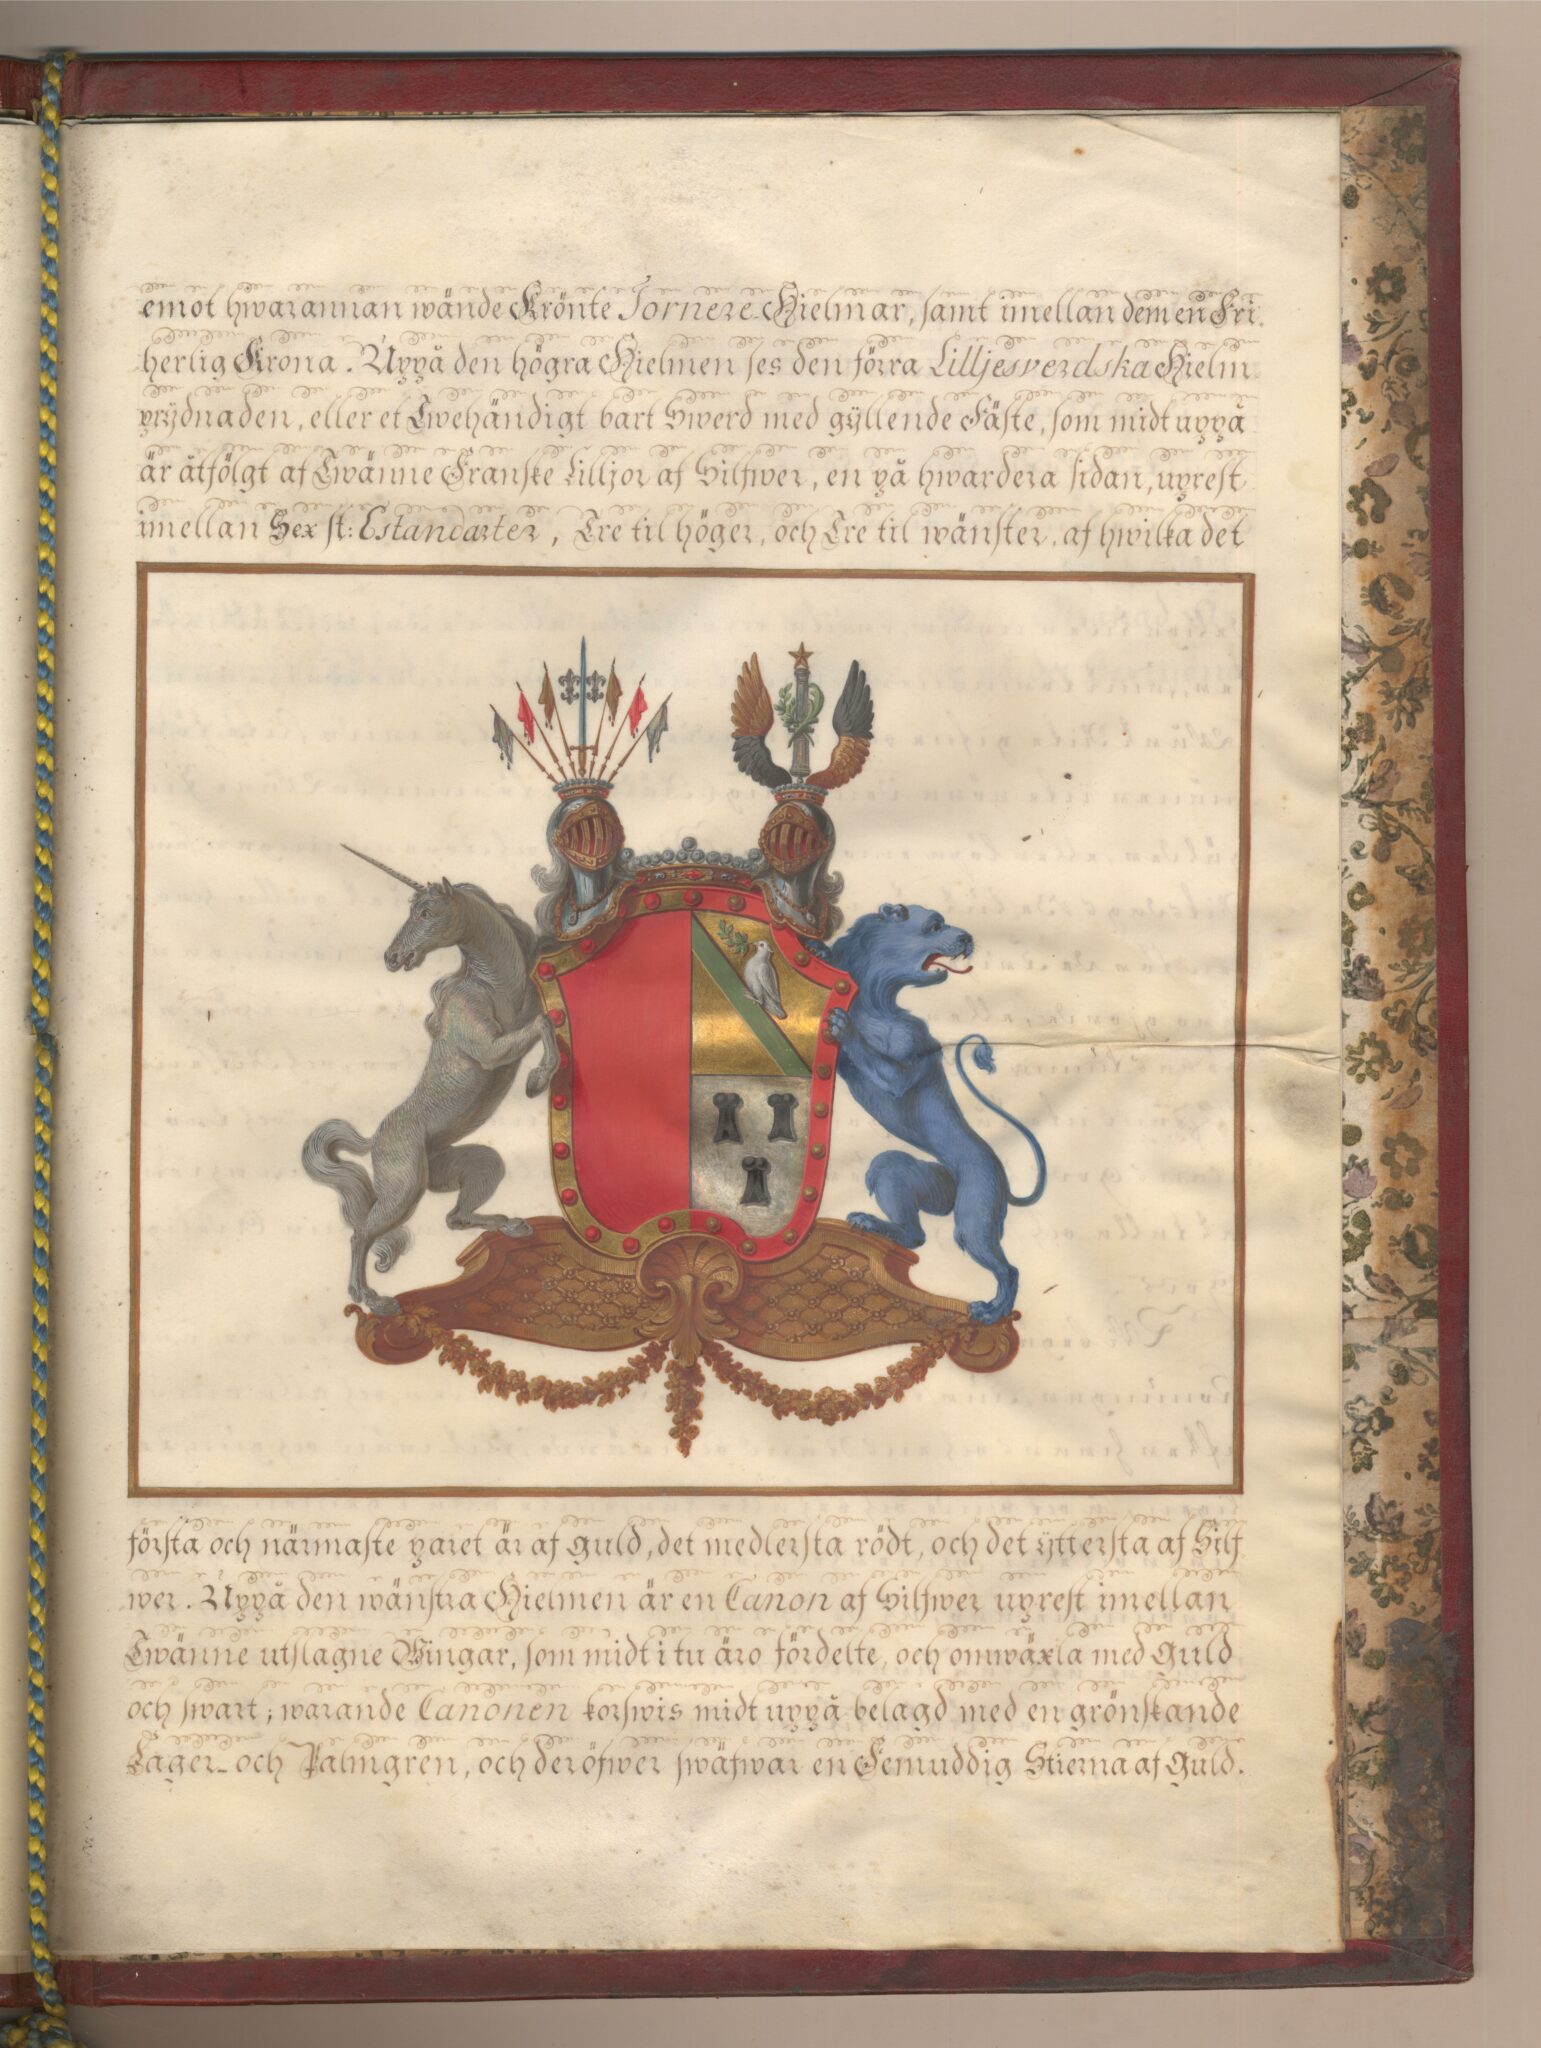 emot hwarannan wände Krönte Tornere-Hielmar, samt imellan dem en Fri-
herlig Krona. Uppå den högra Hielmen ses den förra Lilljesverdska Hielm-
prydnaden, eller et Twehändigt bart Swerd med gyllende Fäste, som midt uppå
är åtfölgt af Twänne Franske Lilljor af Silfwer, en på hwardera sidan, uprest
imellan Sex st: Estandarter, Tre til höger, och Tre til wänster, af hwilka det
första och närmaste paret är af Guld, det medlersta rödt, och det ÿttersta af Silf
wer. Uppå den wänstra Hielmen är en Canon af Silfwer uprest imellan
Twänne utslagne Wingar, som midt i tu äro fördelte, och omwäxla med Guld
och swart; warande Canonen korswis midt uppå belagd med en grönskande
Lager- och Palmgren, och deröfwer swäfwar en Femuddig Stierna af Guld.